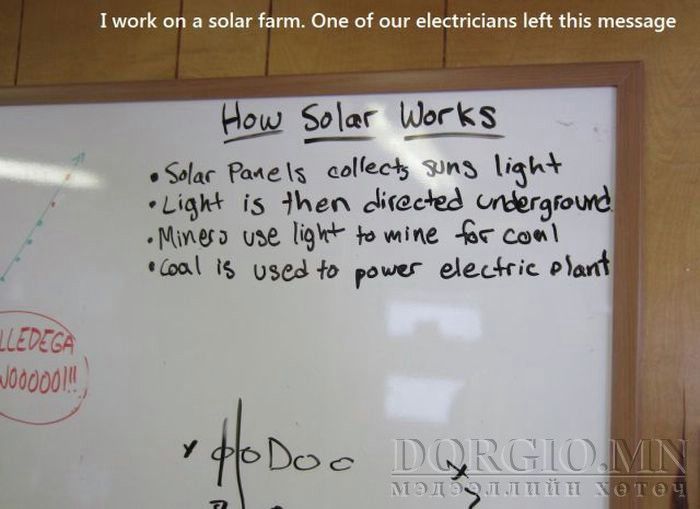 I work on a solar farm. One of our electricians left this message
How Solar Works
• Solar Panels collects suns light
• Light is then directed underground
• Miners use light to mine for coal
• Coal is used to power electric plant
LLEDEGA
NOOOOO!!!
DORGIO.MN
МЭДЭЭЛЛИЙН ХӨТӨЧ